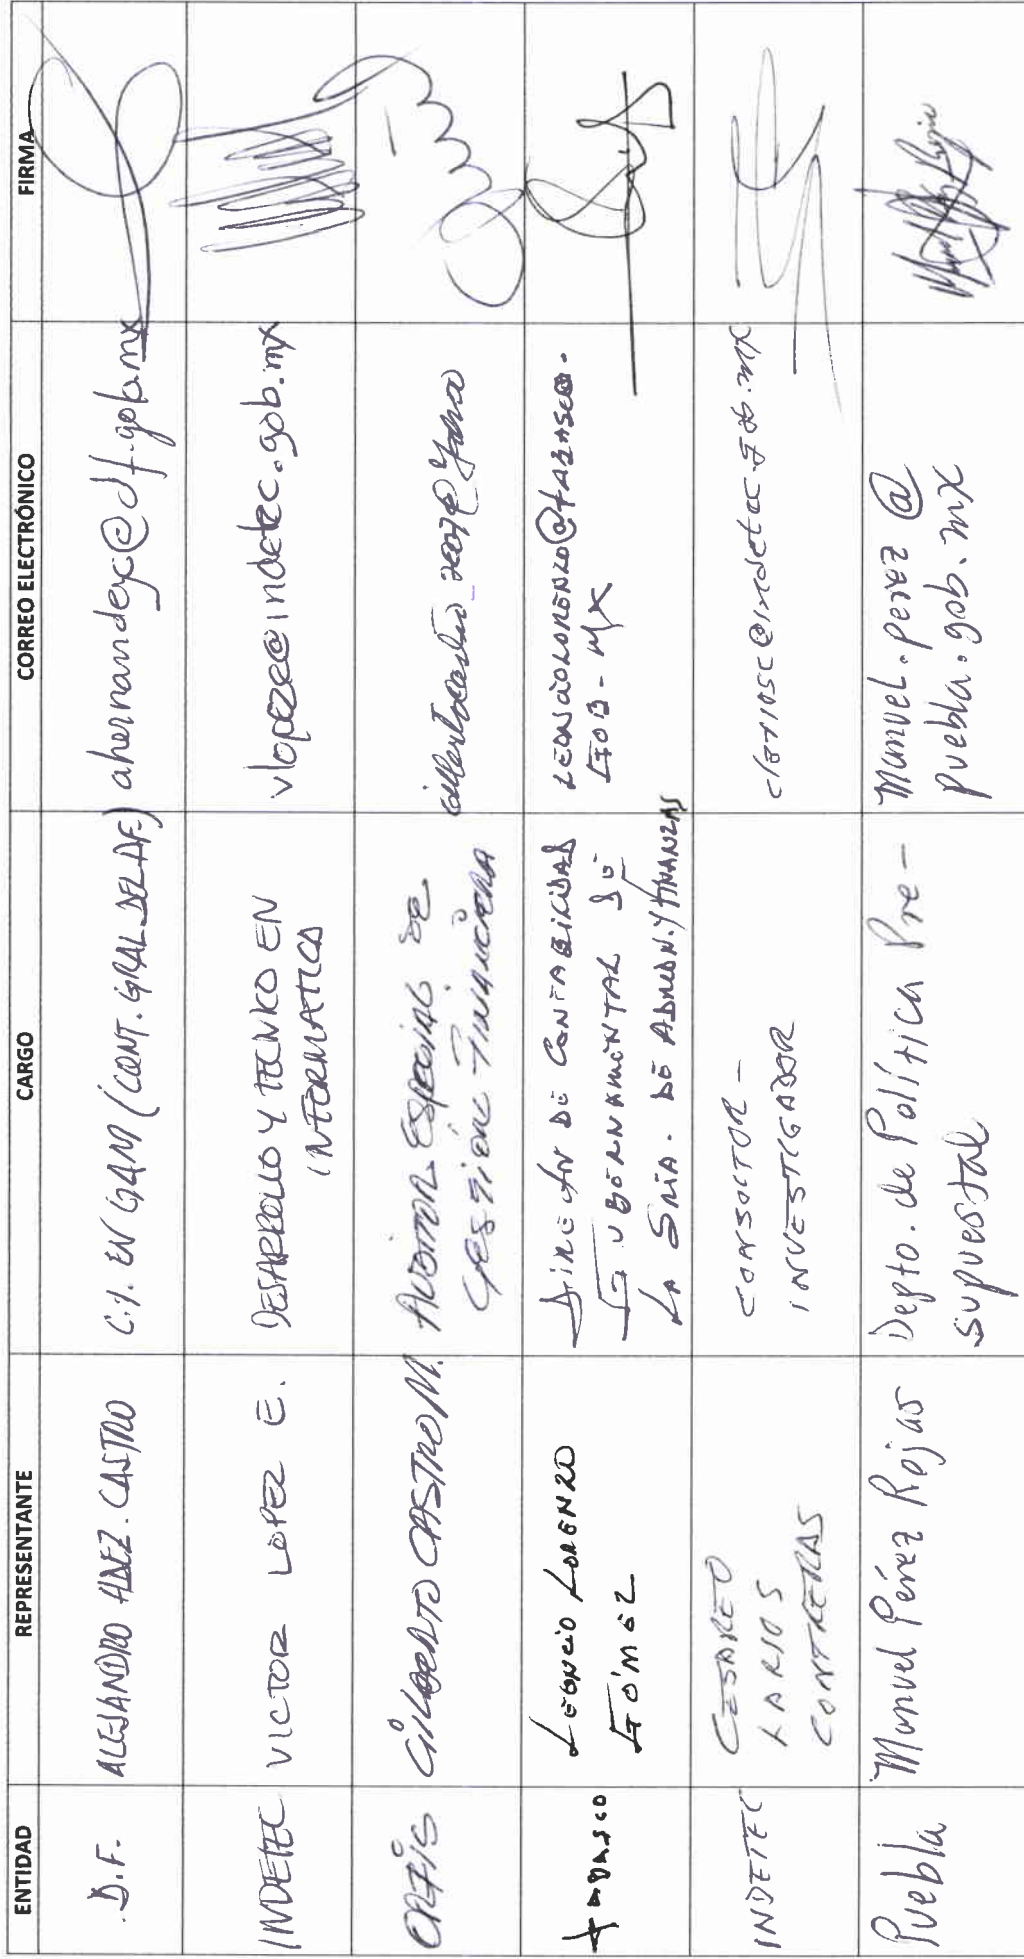 ENTIDAD REPRESENTANTE CARGO CORREO ELECTRÓNICO FIRMA
D.F. ALEJANDRO HDEZ. CASTRO C.I. EN GAM (CONT. GRAL DEL DF.) ahernandezc@df.gob.mx
INDETEC VICTOR LOPEZ E. DESARROLLO Y TECNICO EN
INFORMATICA
vlopeze@indetec.gob.mx
ORFIS GILBERTO CASTRO M. AUDITOR ESPECIAL DE
GESTIÓN FINANCIERA
Tabasco LEONCIO LORENZO
GÓMEZ
Director DE CONTABILIDAD
GUBERNAMENTAL DE
LA SRIA. DE ADMON. Y FINANZAS
LEONCIOLORENZO@TABASCO.
GOB.MX
INDETEC CESAREO
LARIOS
CONTRERAS
CONSULTOR -
INVESTIGADOR
clariosc@indetec.gob.mx
Puebla Manuel Pérez Rojas Depto. de Política Pre-
supuestal
Manuel.perez@
puebla.gob.mx